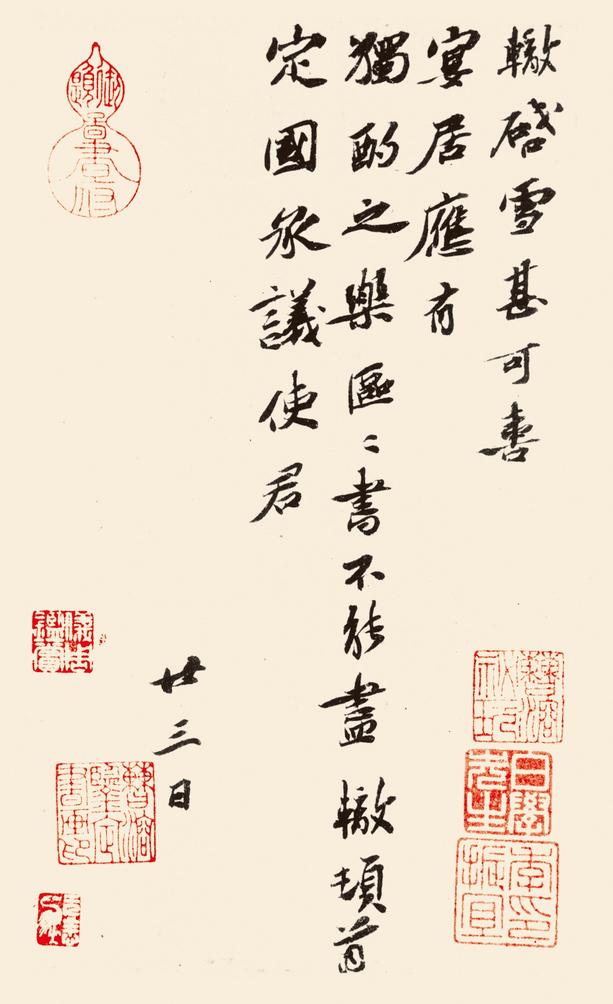 轍啓雪甚可喜
宴居應有
獨酌之樂區〻書不能盡轍頓首
定國承議使君
廿三日
季振宜印